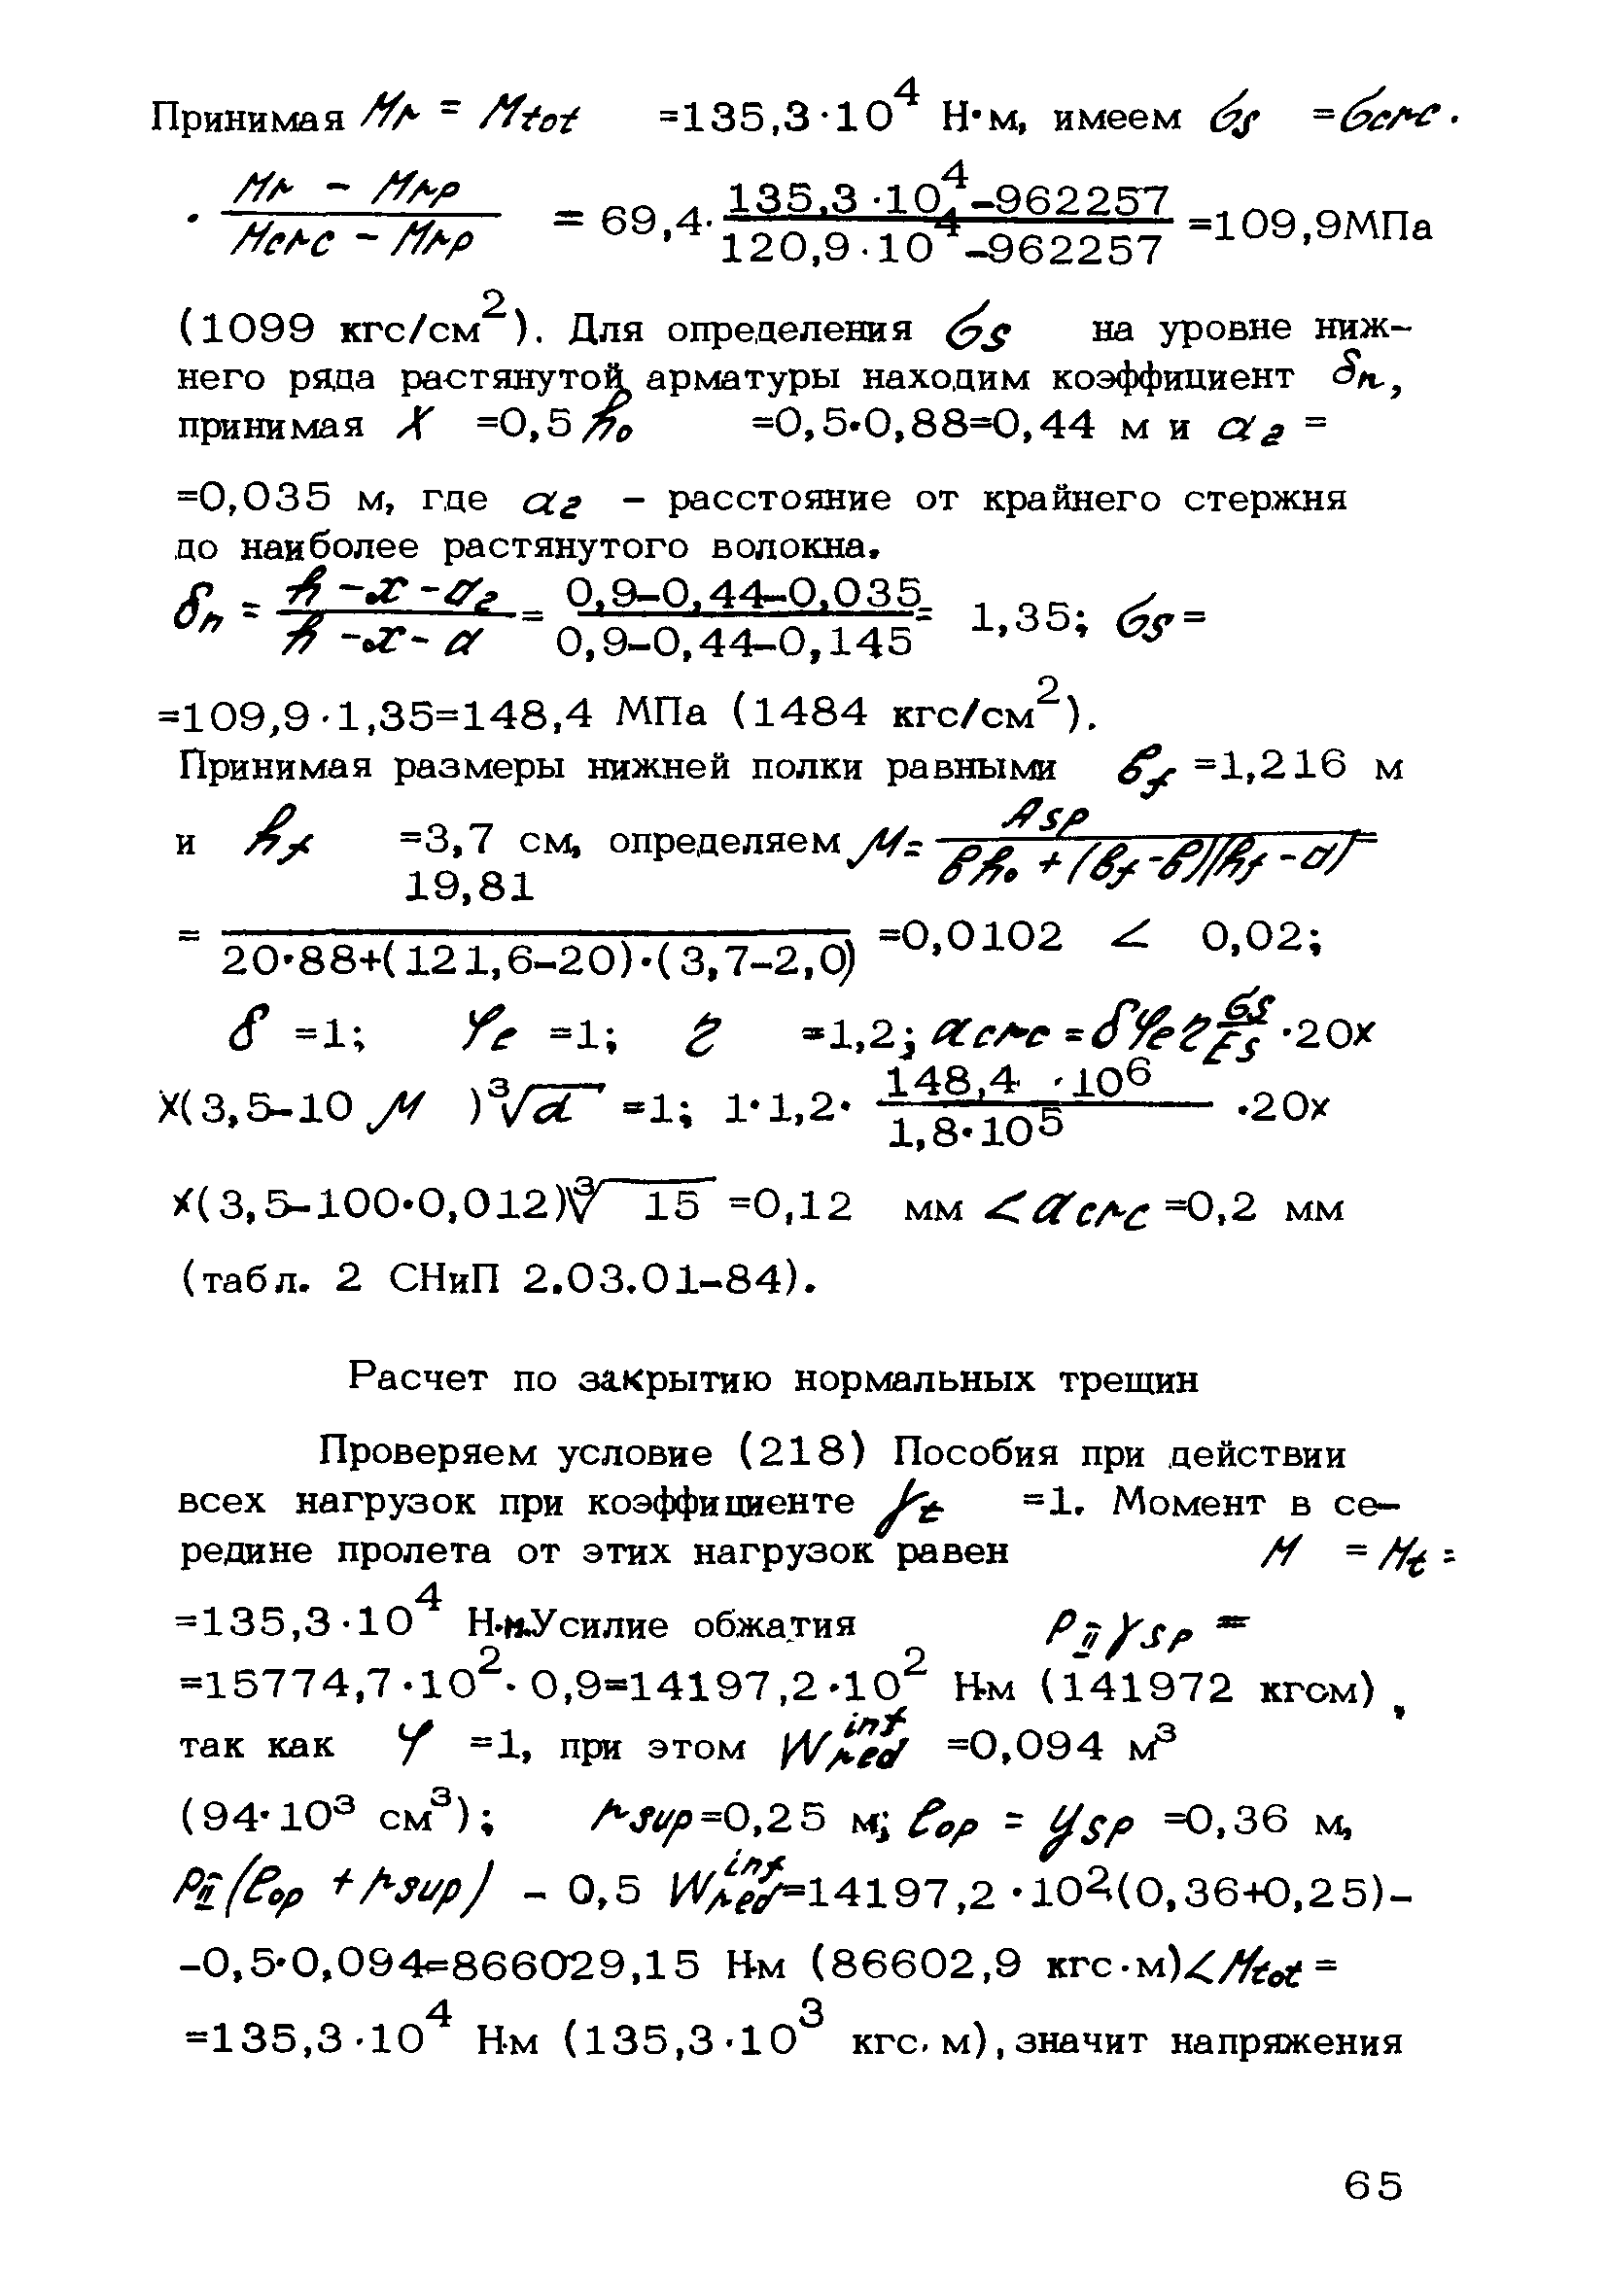 Принимая Mr = Mtot =135,3·10⁴ Н·м, имеем σs =σcrc·
· (Mr - Mrp)/(Mcrc - Mrp) = 69,4·(135,3·10⁴-962257)/(120,9·10⁴-962257) =109,9МПа
(1099 кгс/см²). Для определения σs на уровне ниж-
него ряда растянутой арматуры находим коэффициент δn,
принимая X =0,5 h₀ =0,5·0,88=0,44 м и a₂ =
=0,035 м, где a₂ - расстояние от крайнего стержня
до наиболее растянутого волокна.
δn = (h-x-a₂)/(h-x-a) = (0,9-0,44-0,035)/(0,9-0,44-0,145) = 1,35; σs =
=109,9·1,35=148,4 МПа (1484 кгс/см²).
Принимая размеры нижней полки равными bf =1,216 м
и hf =3,7 см, определяем μ = Asp/(bh₀ + (bf-b)(hf-a)) =
= 19,81/(20·88+(121,6-20)·(3,7-2,0)) =0,0102 < 0,02;
δ =1; φe =1; η =1,2; acrc = δφeη σs/Es ·20x
x(3,5-10 μ )³√d =1; 1·1,2· (148,4·10⁶)/(1,8·10⁵) ·20x
x(3,5-100·0,012)³√15 =0,12 мм < acrc =0,2 мм
(табл. 2 СНиП 2.03.01-84).
Расчет по закрытию нормальных трещин
Проверяем условие (218) Пособия при действии
всех нагрузок при коэффициенте γt =1. Момент в се-
редине пролета от этих нагрузок равен M = Mt =
=135,3·10⁴ Н·м.Усилие обжатия PII γsp =
=15774,7·10²·0,9=14197,2·10² Н·м (141972 кгсм),
так как φ =1, при этом Wred^inf =0,094 м³
(94·10³ см³); rsup=0,25 м; eop = ysp =0,36 м,
PII(eop + rsup) - 0,5 Wred^inf=14197,2·10²(0,36+0,25)-
-0,5·0,094=866029,15 Н·м (86602,9 кгс·м)<Mtot =
=135,3·10⁴ Н·м (135,3·10³ кгс.м),значит напряжения
65